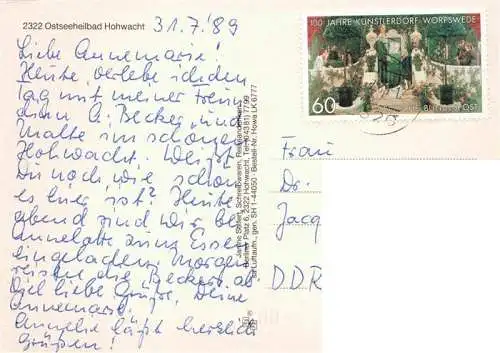 2322 Ostseeheilbad Hohwacht
31.7.'89
Liebe Annemarie!
Heute verlebe ich den
Tag mit meiner Freun
din A. Becker und
Malte im schönen
Hohwacht. Weißt
Du noch, wie schön
es hier ist? Heute
abend sind wir bei
Annelotte zum Essen
eingeladen. Morgen
reisen die Beckers ab.
Viel liebe Grüße, Deine
Annemarie.
Annelie läßt herzlich
grüßen!
Schreibwaren,
Berliner Platz 6, 2322 Hohwacht, Tel. (04381) 7799
frei Luftaufn., gen. SH 1-44050 · Bestell-Nr. Howa LK 6777
100 JAHRE KÜNSTLERDORF WORPSWEDE
60
DEUTSCHE BUNDESPOST
Frau
Dr.
Jacq
DDR